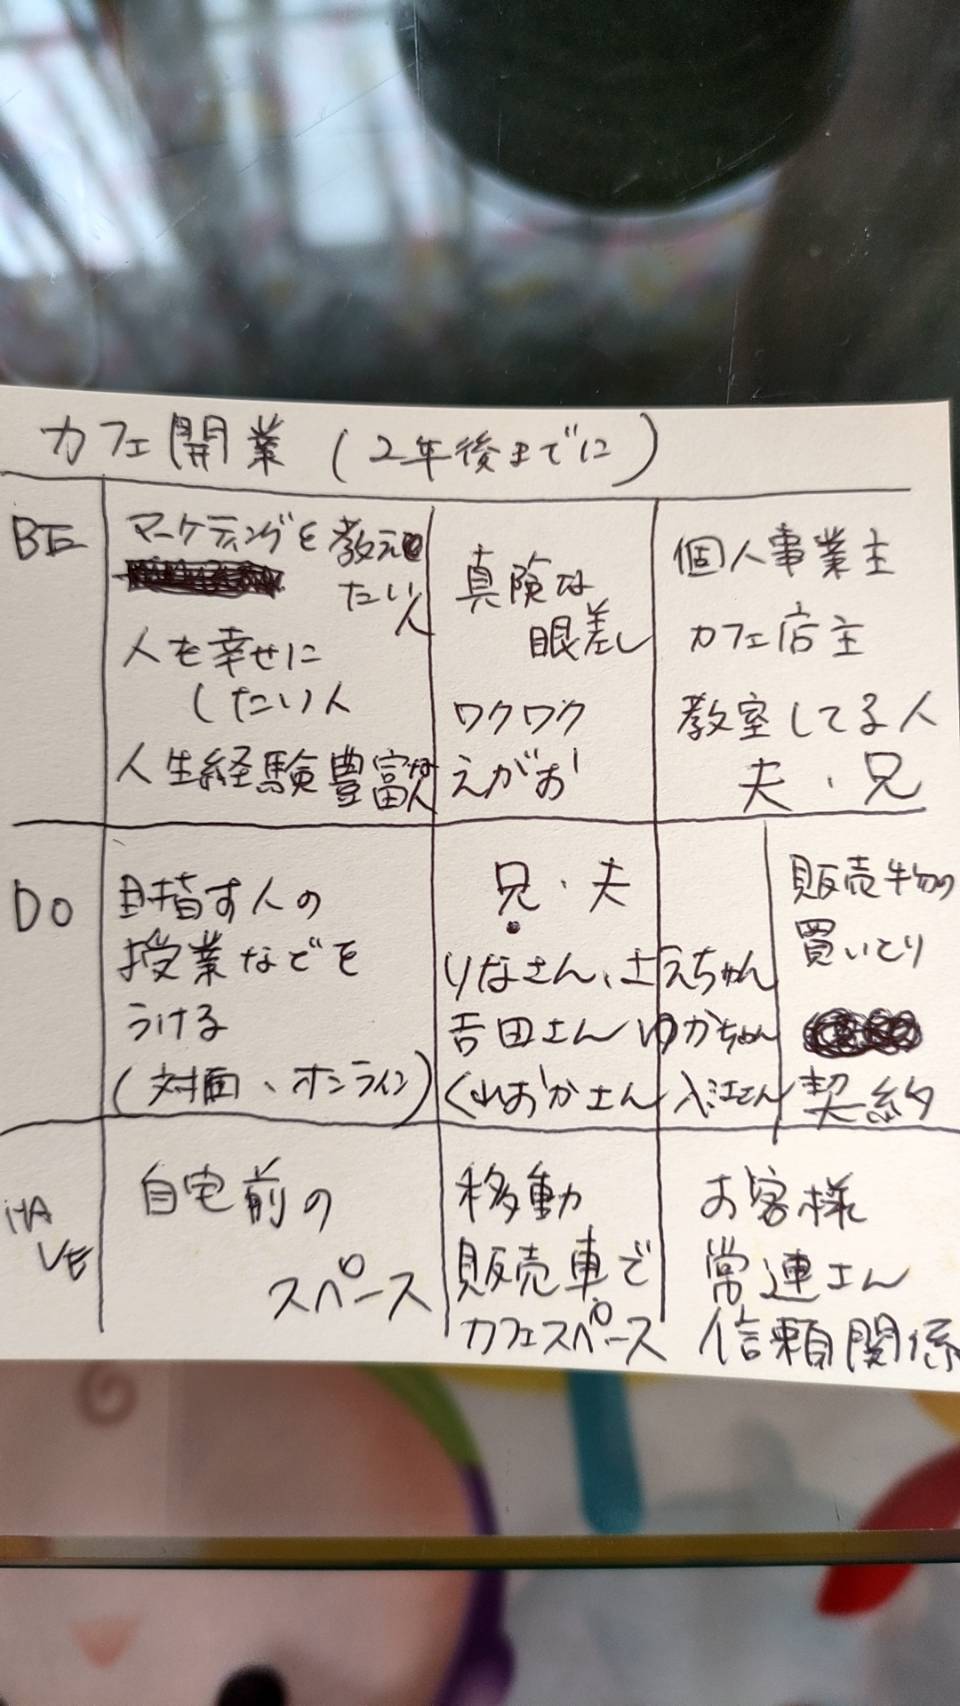 カフェ開業 (2年後までに)
BE
マーケティングを教え
たい人
人を幸せに
したい人
人生経験豊富な人
真険な
眼差し
ワクワク
えがお
個人事業主
カフェ店主
教室してる人
夫・兄
DO
目指す人の
授業などを
うける
(対面、オンライン)
兄・夫
りなさん、さえちゃん
吉田さん ゆかちゃん
くれおかさん 入江さん
販売物の
買いとり
契約
HA
VE
自宅前の
スペース
移動
販売車で
カフェスペース
お客様
常連さん
信頼関係